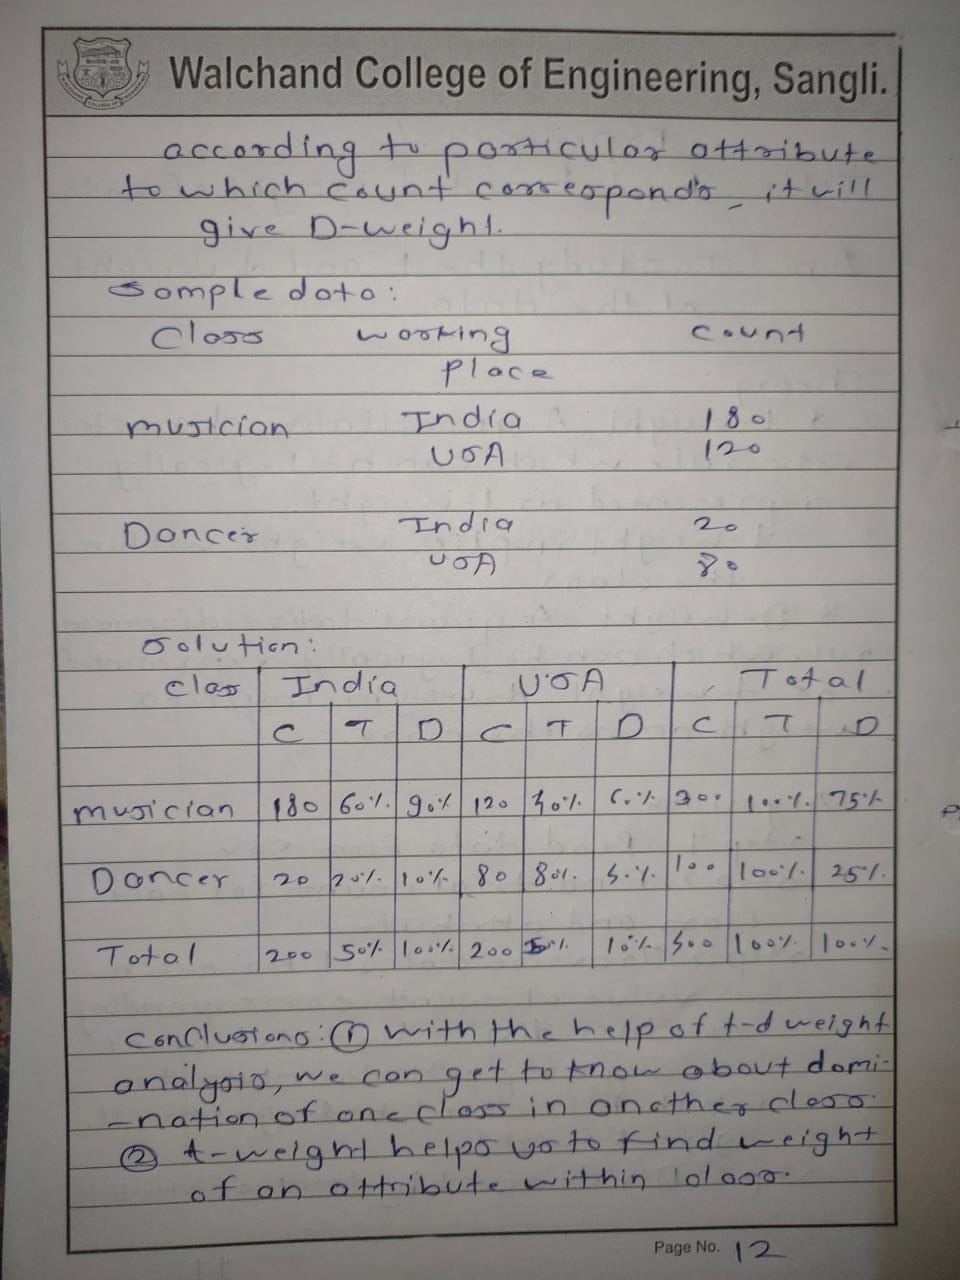 Walchand College of Engineering, Sangli.
according to particular attribute
to which count corresponds, it will
give D-weight.
Sample data:
Class working count
place
musician India 180
USA 120
Dancer India 20
USA 80
Solution:
class India USA Total
C T D C T D C T D
musician 180 60% 90% 120 40% 60% 300 100% 75%
Dancer 20 20% 10% 80 80% 100 100% 25%
Total 200 50% 100% 200 50% 10% 100% 100%
Conclusions: ① With the help of t-d weight
analysis, we can get to know about domi-
-nation of one class in another class.
② t-weight helps us to find weight
of an attribute within class.
Page No. 12